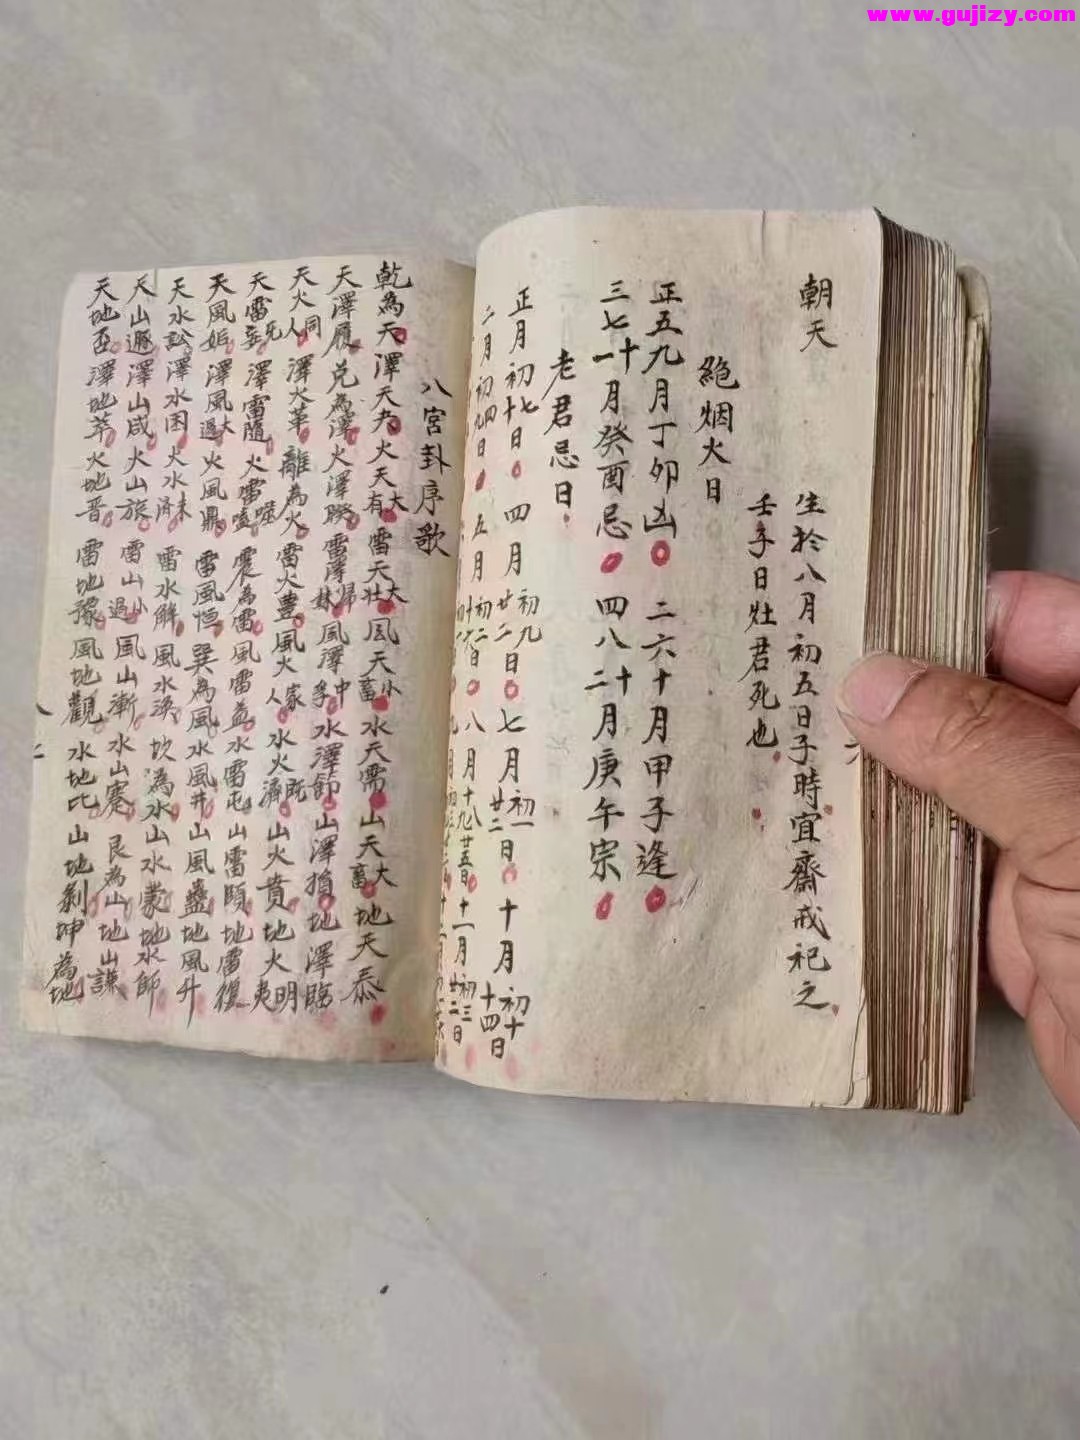 www.gujizy.com
朝天
生於八月初五日子時宜齋戒祀之
壬子日灶君死也
絶烟火日
正五九月丁卯凶 二六十月甲子逢
三七十一月癸酉忌 四八十二月庚午宗
老君忌日
正月初七初十日 四月初九廿二日 七月初一廿二日 十月初十十四日
二月初四初九日 五月初二十六日 八月十八十九廿五日 十一月初三廿二日
八宮卦序歌
乾為天 澤天夬 火天大有 雷天大壯 風天小畜 水天需 山天大畜 地天泰
天澤履 兌為澤 火澤睽 雷澤歸妹 風澤中孚 水澤節 山澤損 地澤臨
天火同人 澤火革 離為火 雷火豊 風火家人 水火既濟 山火賁 地火明夷
天雷无妄 澤雷隨 火雷噬嗑 震為雷 風雷益 水雷屯 山雷頤 地雷復
天風姤 澤風大過 火風鼎 雷風恒 巽為風 水風井 山風蠱 地風升
天水訟 澤水困 火水未濟 雷水解 風水渙 坎為水 山水蒙 地水師
天山遯 澤山咸 火山旅 雷山小過 風山漸 水山蹇 艮為山 地山謙
天地否 澤地萃 火地晋 雷地豫 風地觀 水地比 山地剝 坤為地